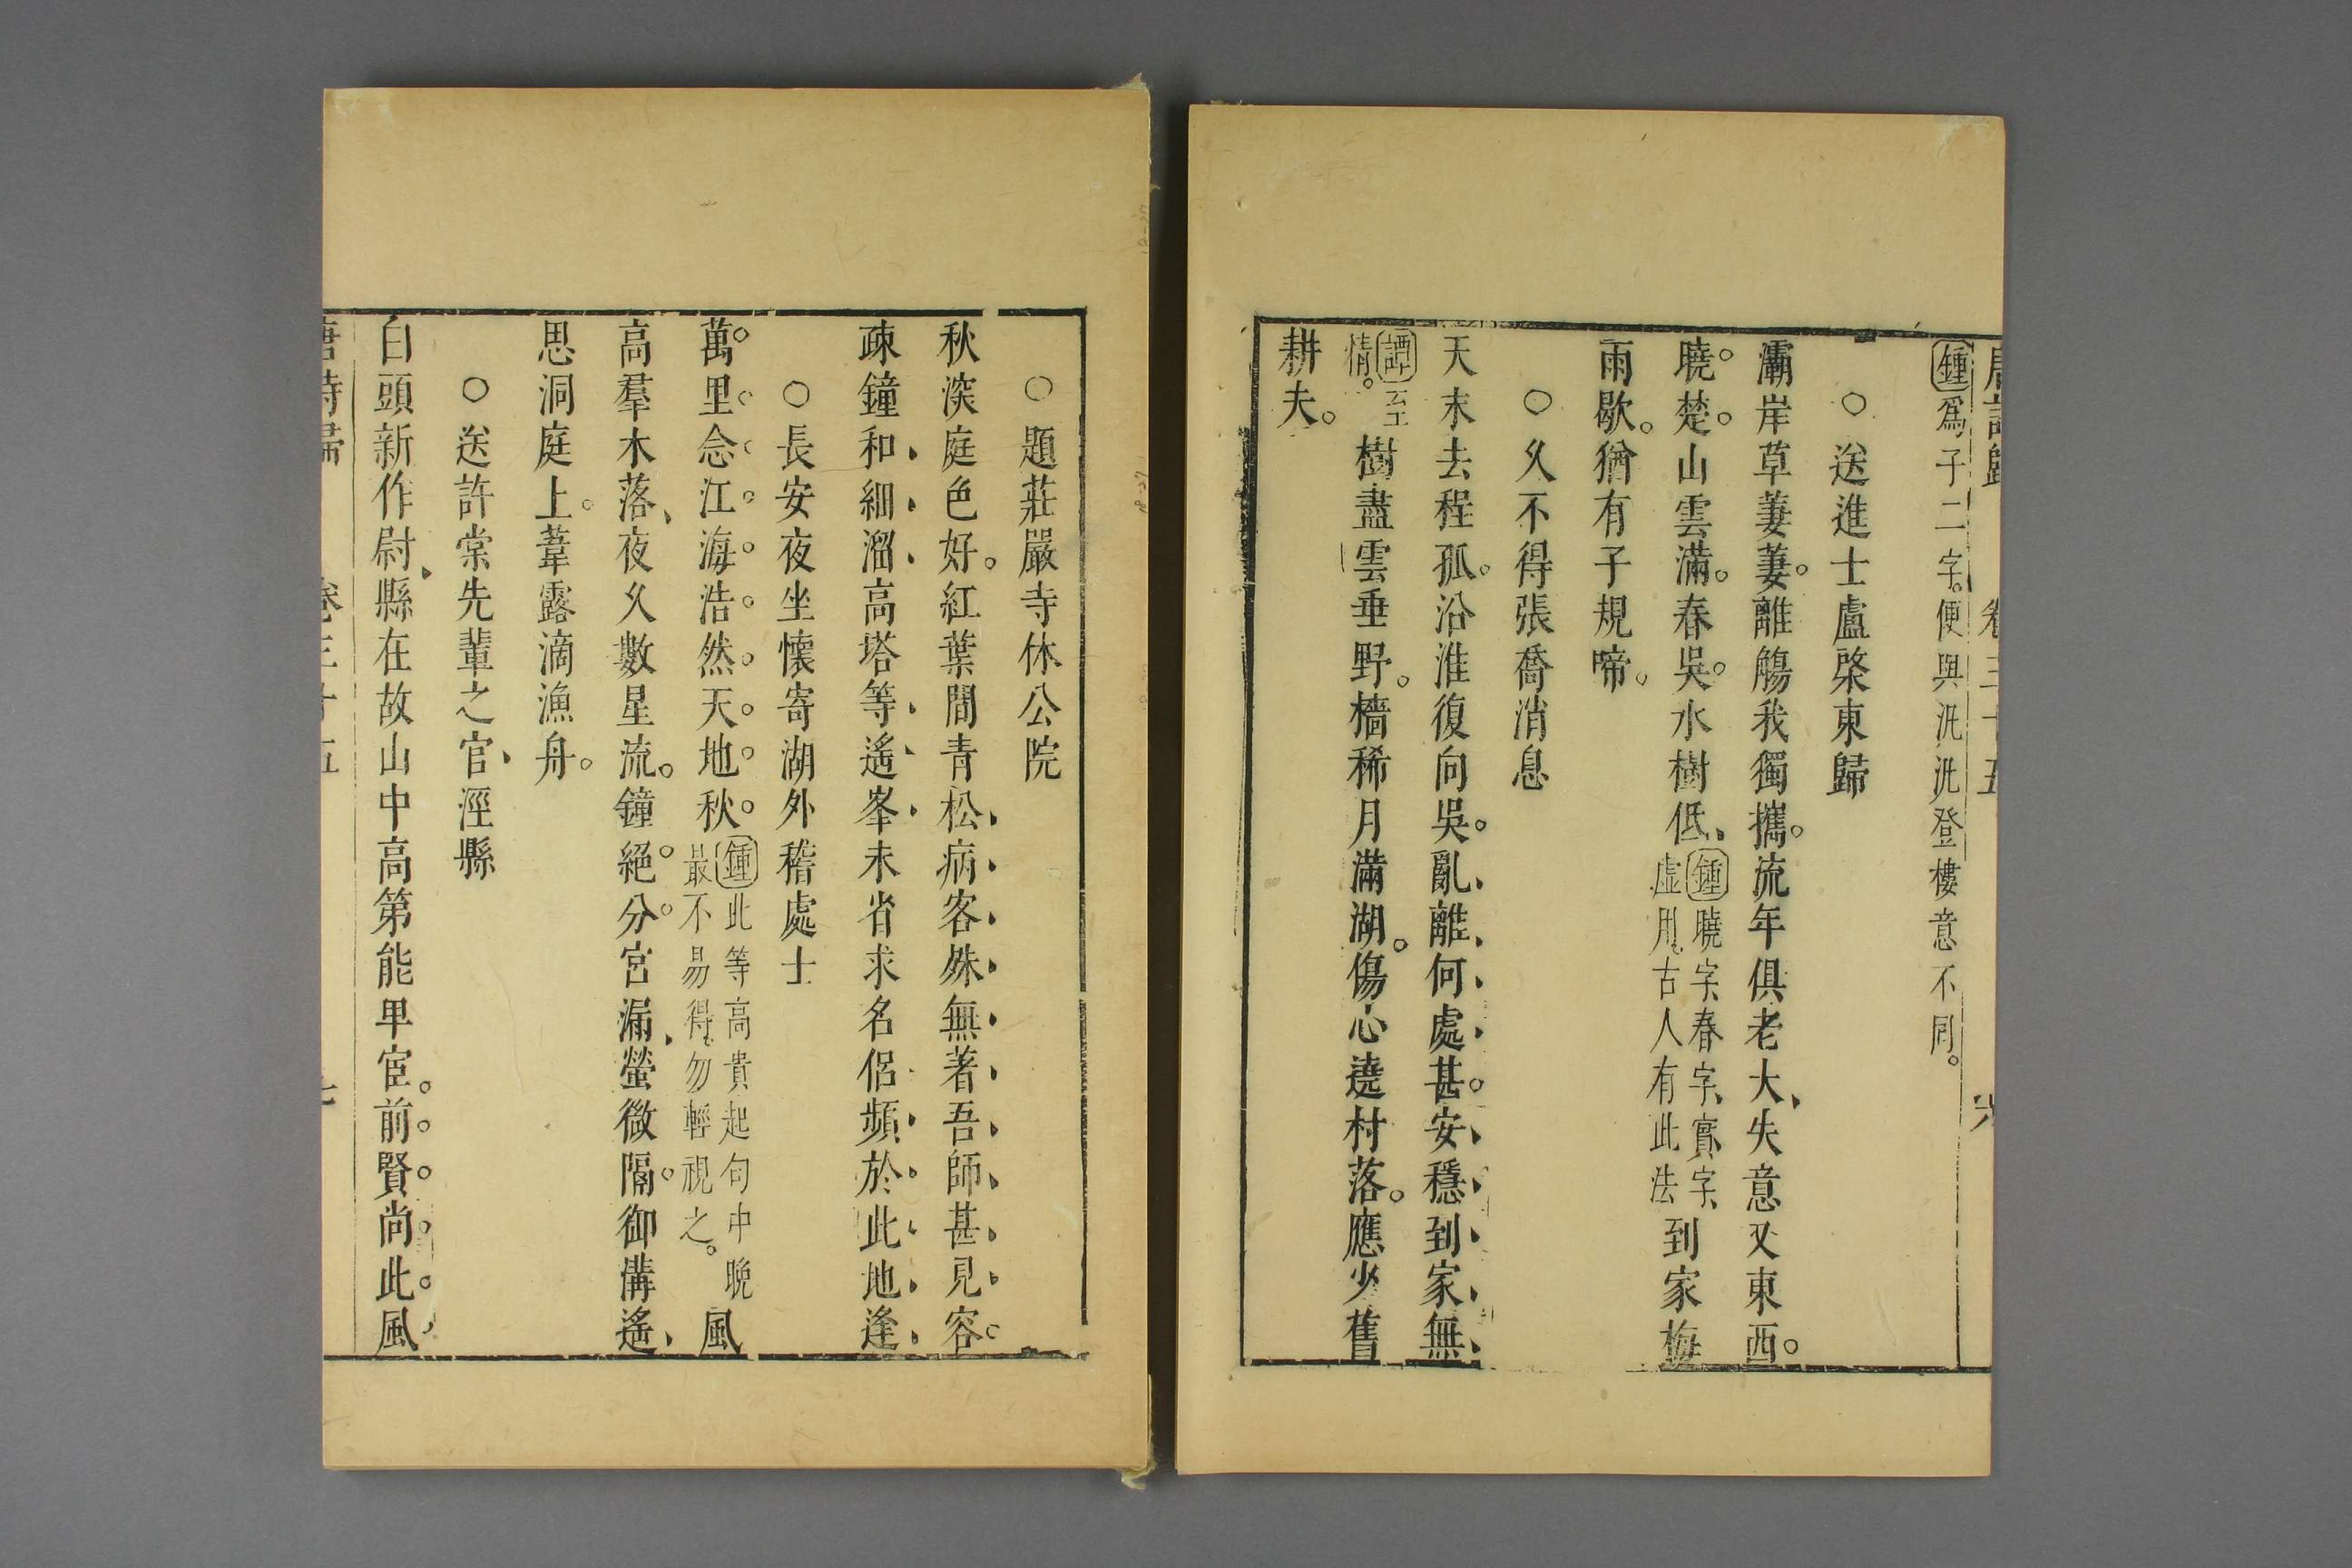 唐詩歸 卷三十五 六
鍾爲子二字便與汎汎登樓意不同。
○送進士盧棨東歸
灞岸草萋萋。離觴我獨攜。流年俱老大、失意又東西。
曉。楚。山雲滿。春吳。水樹低、鍾曉字、春字、實字、虛用。古人有此法到家梅
雨歇。猶有子規啼。
○久不得張喬消息
天末去程孤。沿淮復向吳。亂離何處甚。安穩到家無
譚至情。樹盡雲垂野。檣稀月滿湖。傷心遶村落。應少舊
耕夫。
○題莊嚴寺休公院
秋深庭色好。紅葉間青松病客殊無著吾師甚見容。
疎鐘和細溜高塔等遙峯未省求名侶頻於此地逢
○長安夜坐懷寄湖外稽處士
萬里念江海浩然天地秋。鍾此等高貴起句中晚最不易得。勿輕視之。風
高羣木落、夜久數星流。鐘絕分宮漏、螢微隔御溝遙、
思洞庭上。葦露滴漁舟。
○送許棠先輩之官、涇縣
白頭新作尉、縣在故山中高第能卑宦。前賢尚此風
唐詩歸 卷三十五 七